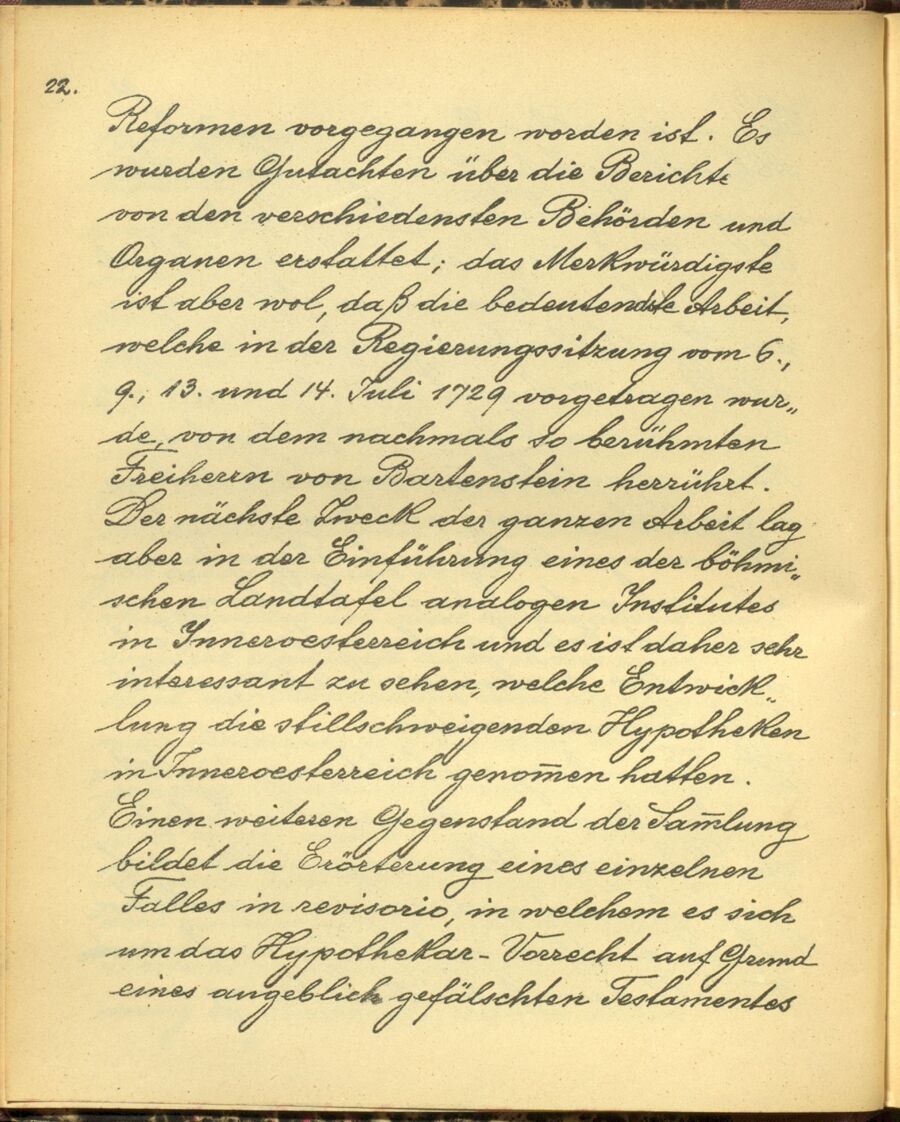 22.
Reformen vorgegangen worden ist. Es
wurden Gutachten über die Berichte
von den verschiedensten Behörden und
Organen erstattet; das Merkwürdigste
ist aber wol, daß die bedeutendste Arbeit,
welche in der Regierungssitzung vom 6.,
9., 13. und 14. Juli 1729 vorgetragen wur„
de, von dem nachmals so berühmten
Freiherrn von Bartenstein herrührt.
Der nächste Zweck der ganzen Arbeit lag
aber in der Einführung eines der böhmi„
schen Landtafel analogen Institutes
in Inneroesterreich und es ist daher sehr
interessant zu sehen, welche Entwick„
lung die stillschweigenden Hypotheken
in Inneroesterreich genom̅en hatten.
Einen weiteren Gegenstand der Sam̅lung
bildet die Erörterung eines einzelnen
Falles in revisorio, in welchem es sich
um das Hypothekar-Vorrecht auf Grund
eines angeblich gefälschten Testamentes